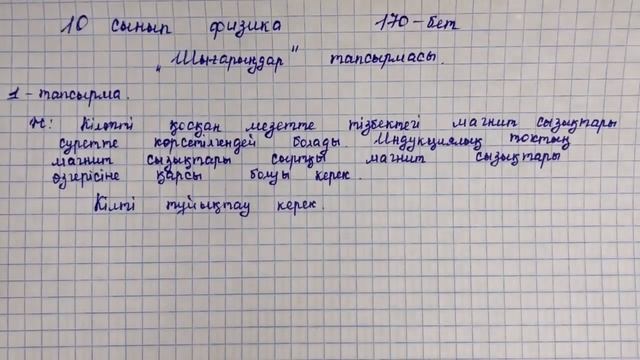 10 сынып физика 170-бет
„Шығарыңдар" тапсырмасы.
1-тапсырма.
Ж: Кілтті қосқан мезетте тізбектегі магнит сызықтары
суретте көрсетілгендей болады. Индукциялық токтың
магнит сызықтары сыртқы магнит сызықтары
өзгерісіне қарсы болуы керек.
Кілті тұйықтау керек.